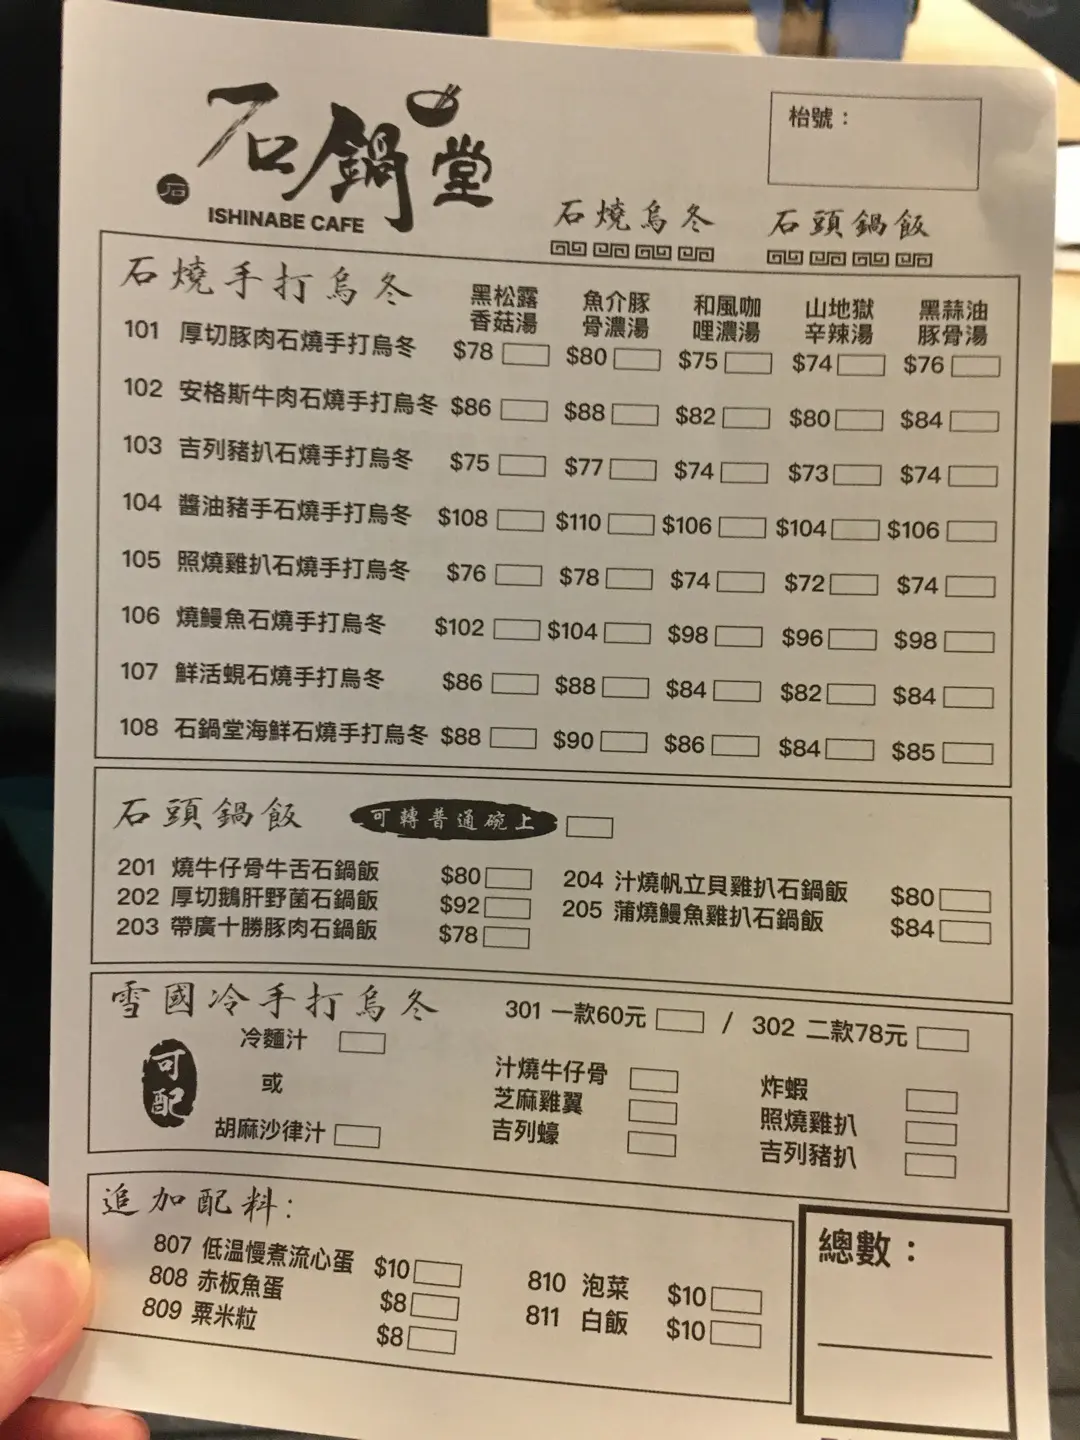 石鍋堂
石
ISHINABE CAFE
枱號：
石燒烏冬
石頭鍋飯
石燒手打烏冬
黑松露香菇湯 魚介豚骨濃湯 和風咖哩濃湯 山地獄辛辣湯 黑蒜油豚骨湯
101 厚切豚肉石燒手打烏冬 $78 $80 $75 $74 $76
102 安格斯牛肉石燒手打烏冬 $86 $88 $82 $80 $84
103 吉列豬扒石燒手打烏冬 $75 $77 $74 $73 $74
104 醬油豬手石燒手打烏冬 $108 $110 $106 $104 $106
105 照燒雞扒石燒手打烏冬 $76 $78 $74 $72 $74
106 燒鰻魚石燒手打烏冬 $102 $104 $98 $96 $98
107 鮮活蜆石燒手打烏冬 $86 $88 $84 $82 $84
108 石鍋堂海鮮石燒手打烏冬 $88 $90 $86 $84 $85
石頭鍋飯 可轉普通碗上
201 燒牛仔骨牛舌石鍋飯 $80
202 厚切鵝肝野菌石鍋飯 $92
203 帶廣十勝豚肉石鍋飯 $78
204 汁燒帆立貝雞扒石鍋飯 $80
205 蒲燒鰻魚雞扒石鍋飯 $84
雪國冷手打烏冬 301 一款60元 / 302 二款78元
可配
冷麵汁
或
胡麻沙律汁
汁燒牛仔骨
芝麻雞翼
吉列蠔
炸蝦
照燒雞扒
吉列豬扒
追加配料:
807 低温慢煮流心蛋 $10
808 赤板魚蛋 $8
809 粟米粒 $8
810 泡菜 $10
811 白飯 $10
總數：